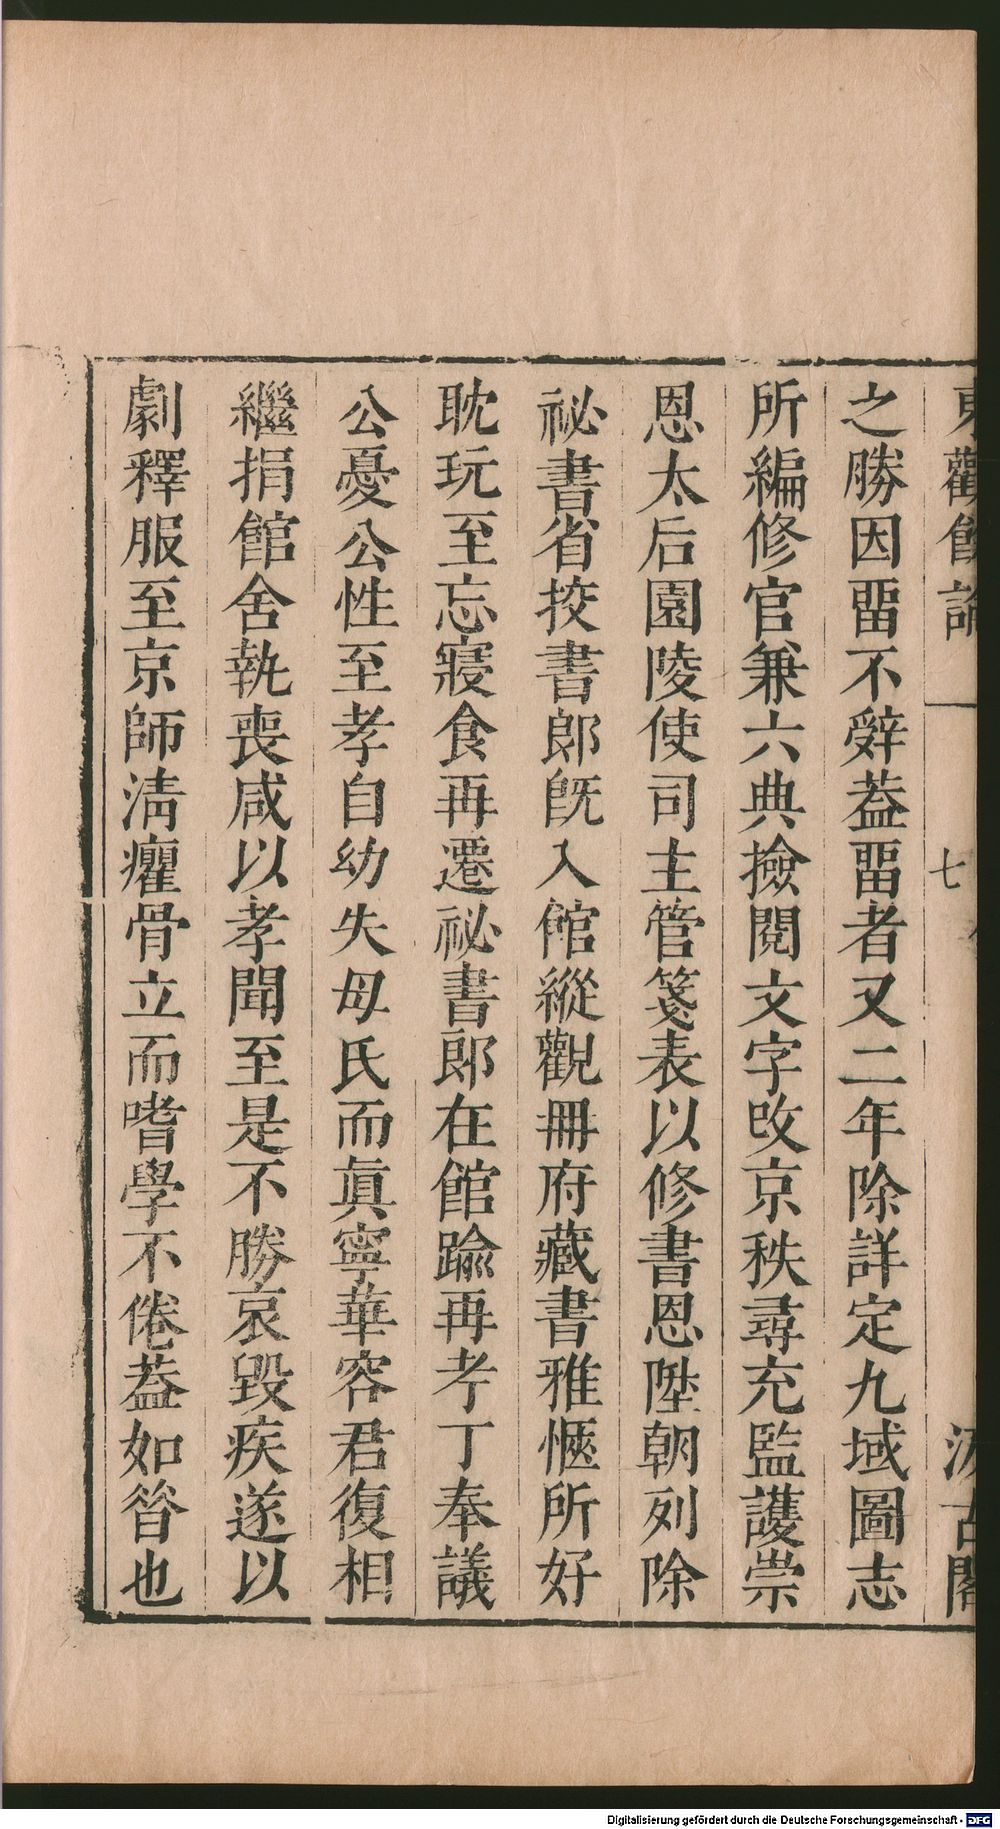 東觀餘論
七
汲古閣
之勝因畱不辭葢畱者又二年除詳定九域圖志
所編修官兼六典撿閱文字改京秩尋充監護崇
恩太后園陵使司主管箋表以修書恩陞朝列除
祕書省挍書郎旣入館縱觀冊府藏書雅愜所好
耽玩至忘寢食再遷祕書郎在館踰再考丁奉議
公憂公性至孝自幼失母氏而眞寧華容君復相
繼捐館舍執喪咸以孝聞至是不勝哀毀疾遂以
劇釋服至京師淸癯骨立而嗜學不倦葢如昝也
Digitalisierung gefördert durch die Deutsche Forschungsgemeinschaft - DFG